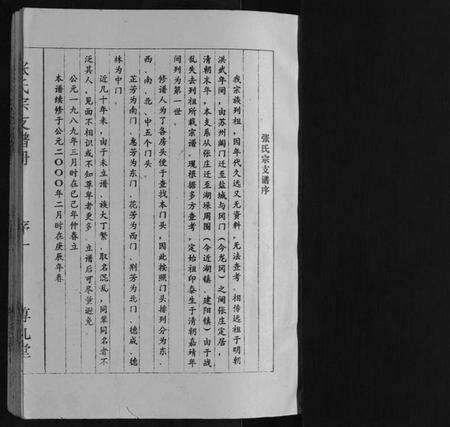 张氏宗支谱序
我宗族列祖，因年代久远又无资料，无法查考，相传远祖于明朝
洪武年间，由苏州阊门迁至盐城与冈门（今龙冈）之间张庄定居，
清朝末年，本支系从张庄迁至湖垛周围（今近湖镇、建阳镇）由于战
乱失去到祖所载宗谱，现根据多方查考，定始祖印泰生于清朝嘉靖年
间列为第一世。
修谱人为了各房头便于查找本门头，因此按照门头排列分为东、
西、南、北、中五个门头。
正芳为南门、惠芳为东门、花芳为西门、别芳为北门、德咸、德
林为中门。
近几十年来，由于未立谱，族大丁繁，取名混乱，同辈同名者不
泛其人，见面不相识或不知尊卑者更多，立谱后可尽量避免。
公元一九八九年三月时在己巳年仲春立
本谱续修于公元二〇〇〇年二月时在庚辰年春
张氏宗支谱册
序一